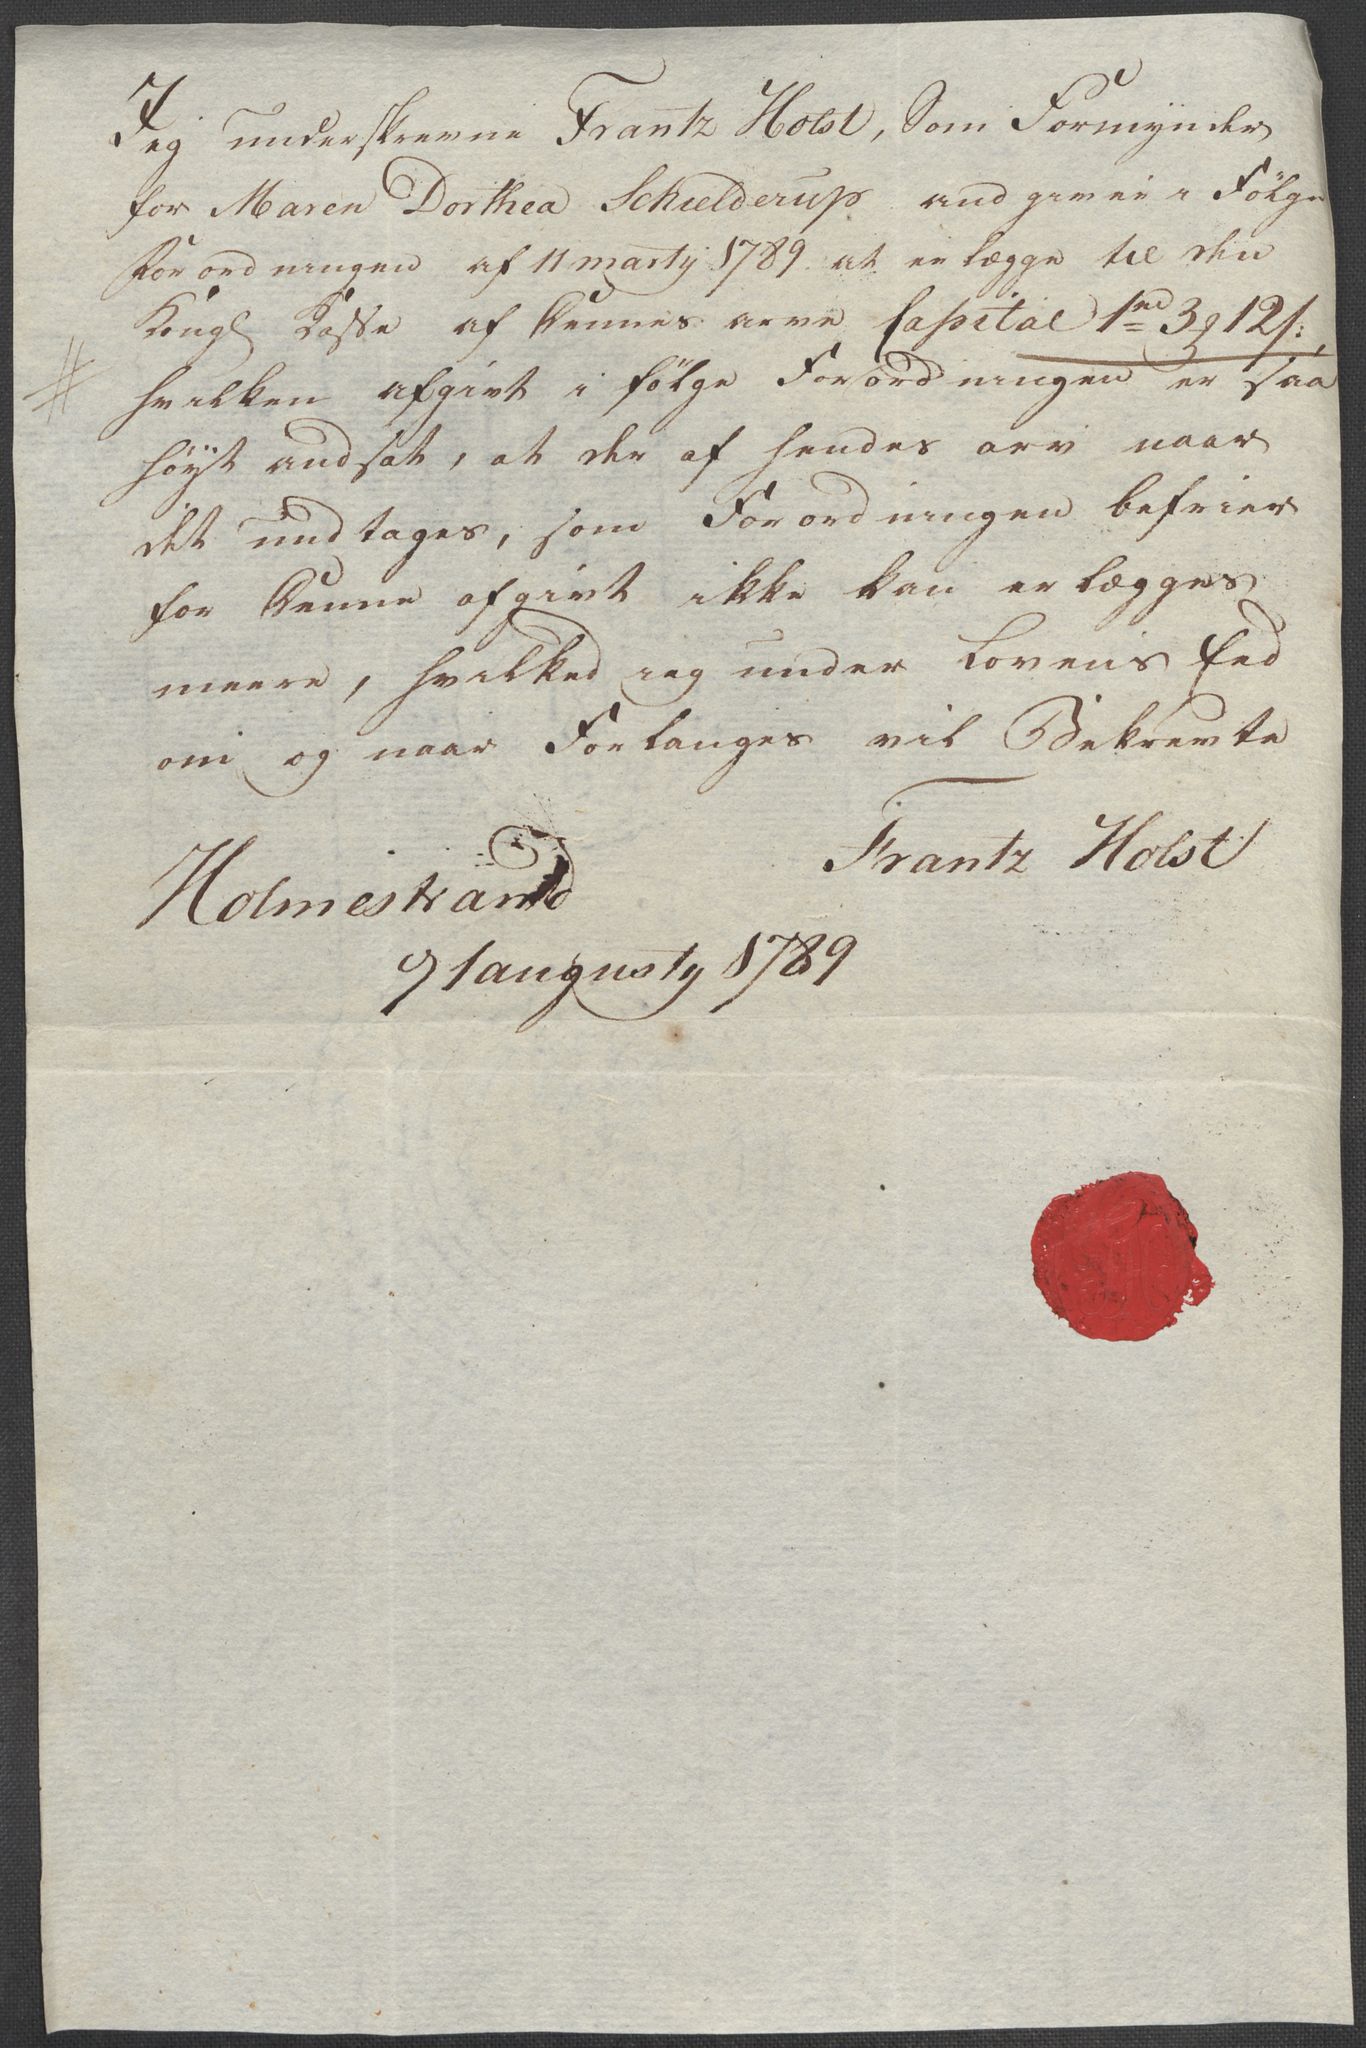 Jeg underskrevne Frantz Holst, Som Formynder
for Maren Dorthea Schielderup andgiver i Fölge
Forordningen af 11 martij 1789 at erlægge til den
Kongl Casse af dennes arve Capital 1rd 3 12s:,
hvilken afgivt i fölge Forordningen er saa
höyt andsat, at der af hendes arv naar
det undtages, som Forordningen befrier
for denne afgivt ikke kan erlægges
meere, hvilked ieg under Lovens Eed
om og naar Forlanges vil Bekrevte
Frantz Holst
Holmestrand
augusty 1789